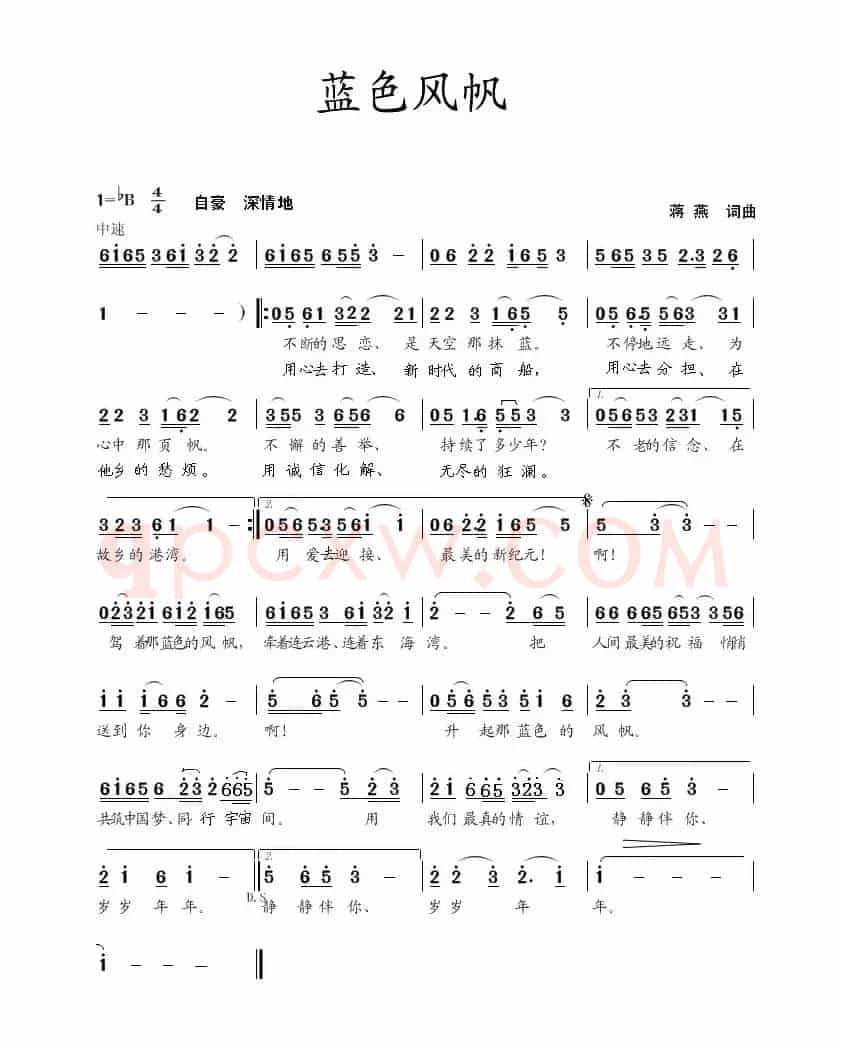 蓝色风帆
1=♭B 4/4 自豪 深情地
蒋 燕 词曲
中速
6i65 361 322 | 6i65 6553 – | 06 22 i653 | 565 35 2.326
1 – – – ) ‖: 05 61 322 21 | 22 3 165 5 | 05 6.5 563 31
不断的思恋、是天空那抹蓝。不停地远走、为
用心去打造、新时代的商船，用心去分担、在
1.
22 3 162 2 | 355 3 656 6 | 05 1.6 553 3 | 05653 231 15
心中那页帆。不懈的善举、持续了多少年？不老的信念、在
他乡的愁烦。用诚信化解、无尽的狂澜。
2.
323 61 1 – :‖ 05653561 i | 06 2.2 i65 5 | 5 3 3 –
故乡的港湾。用爱去迎接、最美的新纪元！啊！
0232i 6i2 i65 | 6i65 3 6i32i | 2 – – 2 65 | 66 665 653 356
驾着那蓝色的风帆，牵着连云港、连着东海湾。把人间最美的祝福悄悄
ii i66 2 – | 5 65 5 – | 05653 5i 6 | 23 3 –
送到你身边。啊！升起那蓝色的风帆。
1.
6i656 23 2665 | 5 – – 5 23 | 2i 665 323 3 | 05 653
共筑中国梦、同行宇宙间。用我们最真的情谊，静静伴你、
2.
2 i 6 i – :‖ 5 653 – | 22 3 2. i | i – – –
D.S.
岁岁年年。静静伴你、岁岁年年。
i – – – ‖
qpcxw.COM